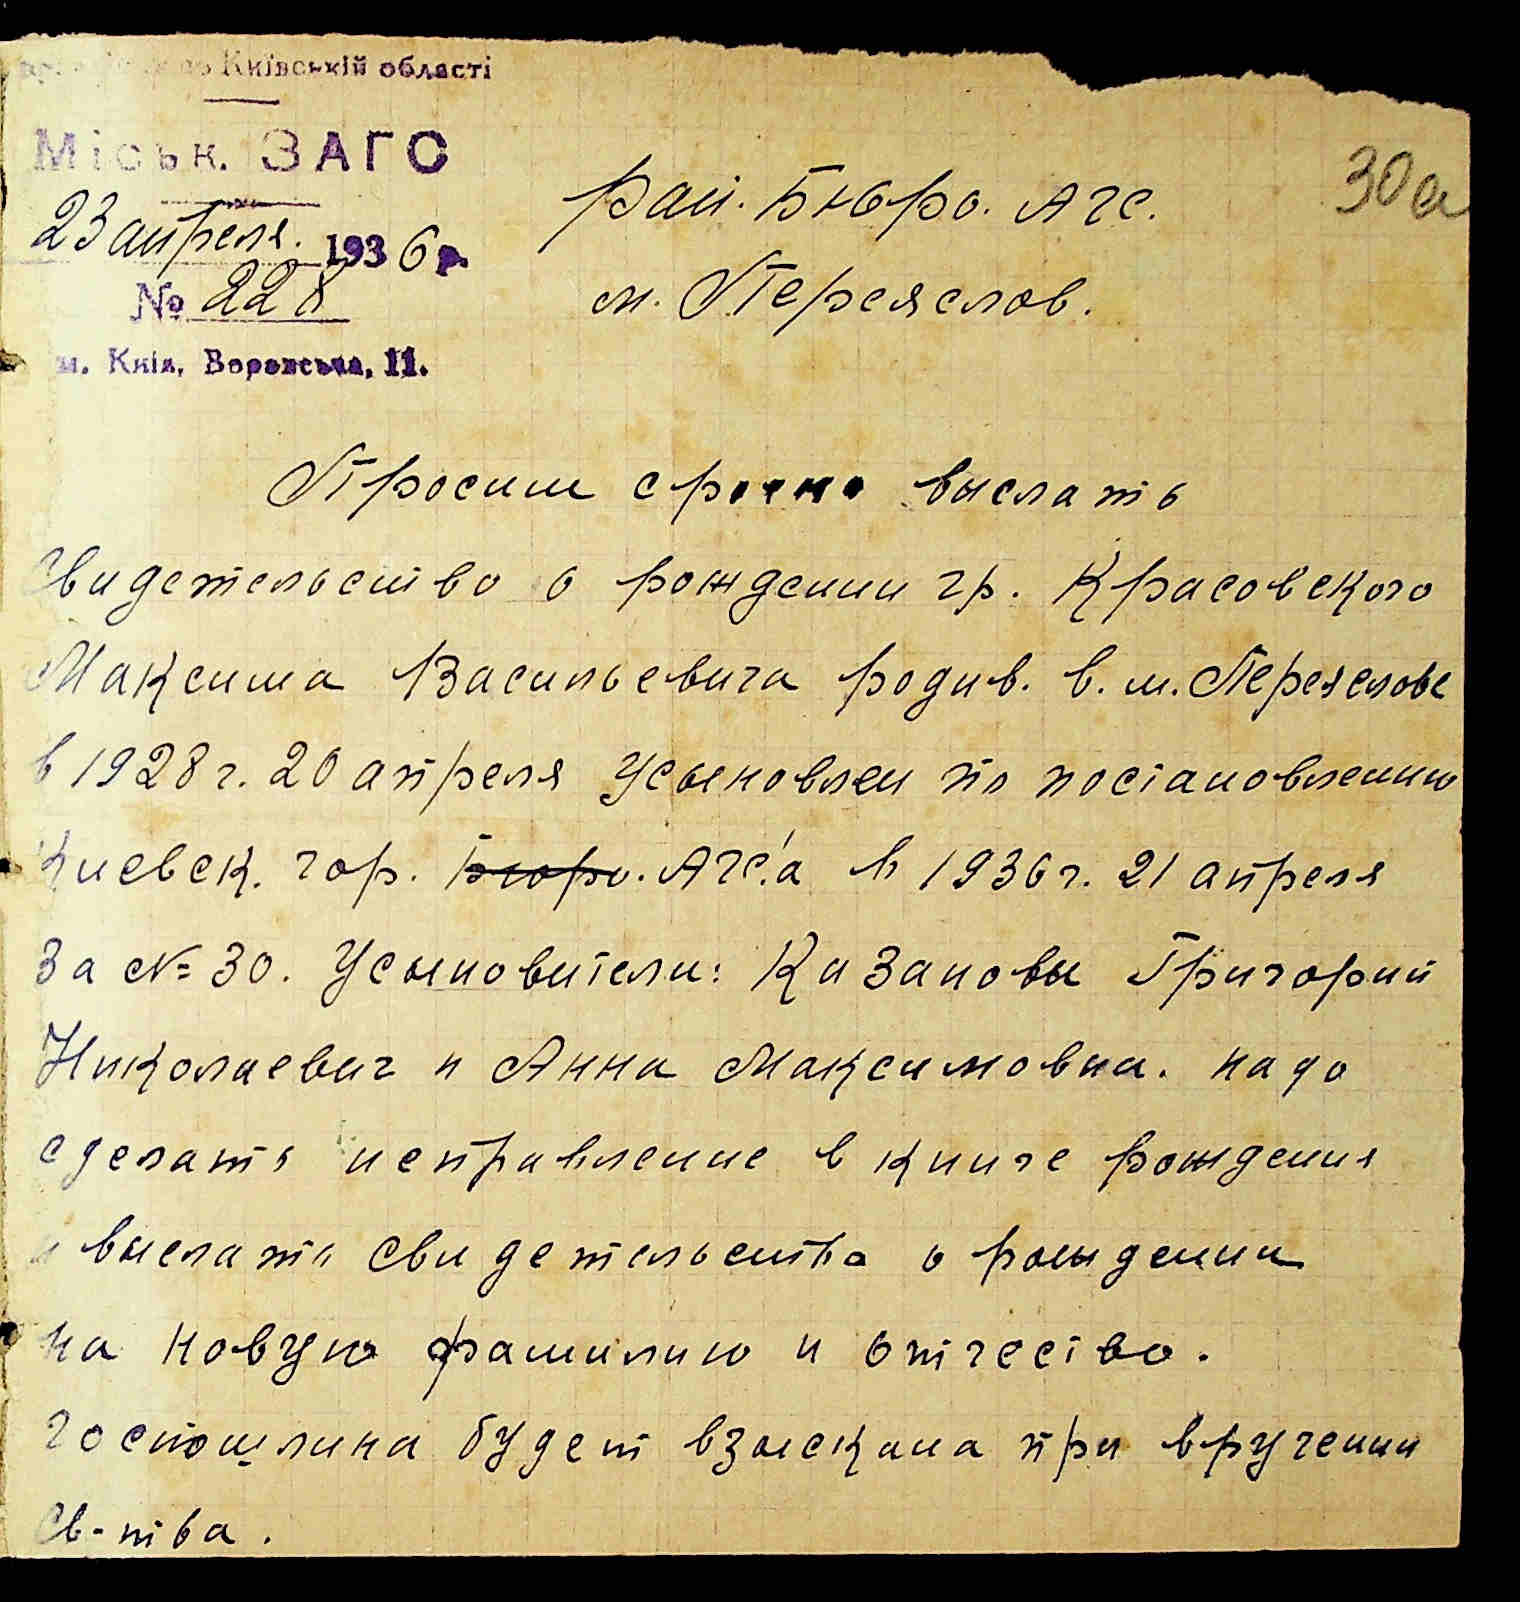 Київській області
Міськ. ЗАГС
30а
рай. Бюро. АГС.
23 апреля. 1936 р.
№ 228
м. Переяслов.
м. Київ, Воровська, 11.
Просим срочно выслать
Свидетельство о рождении гр. Красовского
Максима Васильевича родив. в. м. Переяслове
в 1928 г. 20 апреля Усыновлен по постановлению
Киевск. гор. Бюро. АГС'а в 1936 г. 21 апреля
За № 30. Усыновители: Казановы Григорий
Николаевич и Анна Максимовна. надо
сделать исправление в книге рождения
и выслать свидетельства о рождении
на новую фамилию и отчество.
госпошлина будет взыскана при вручении
св-тва.